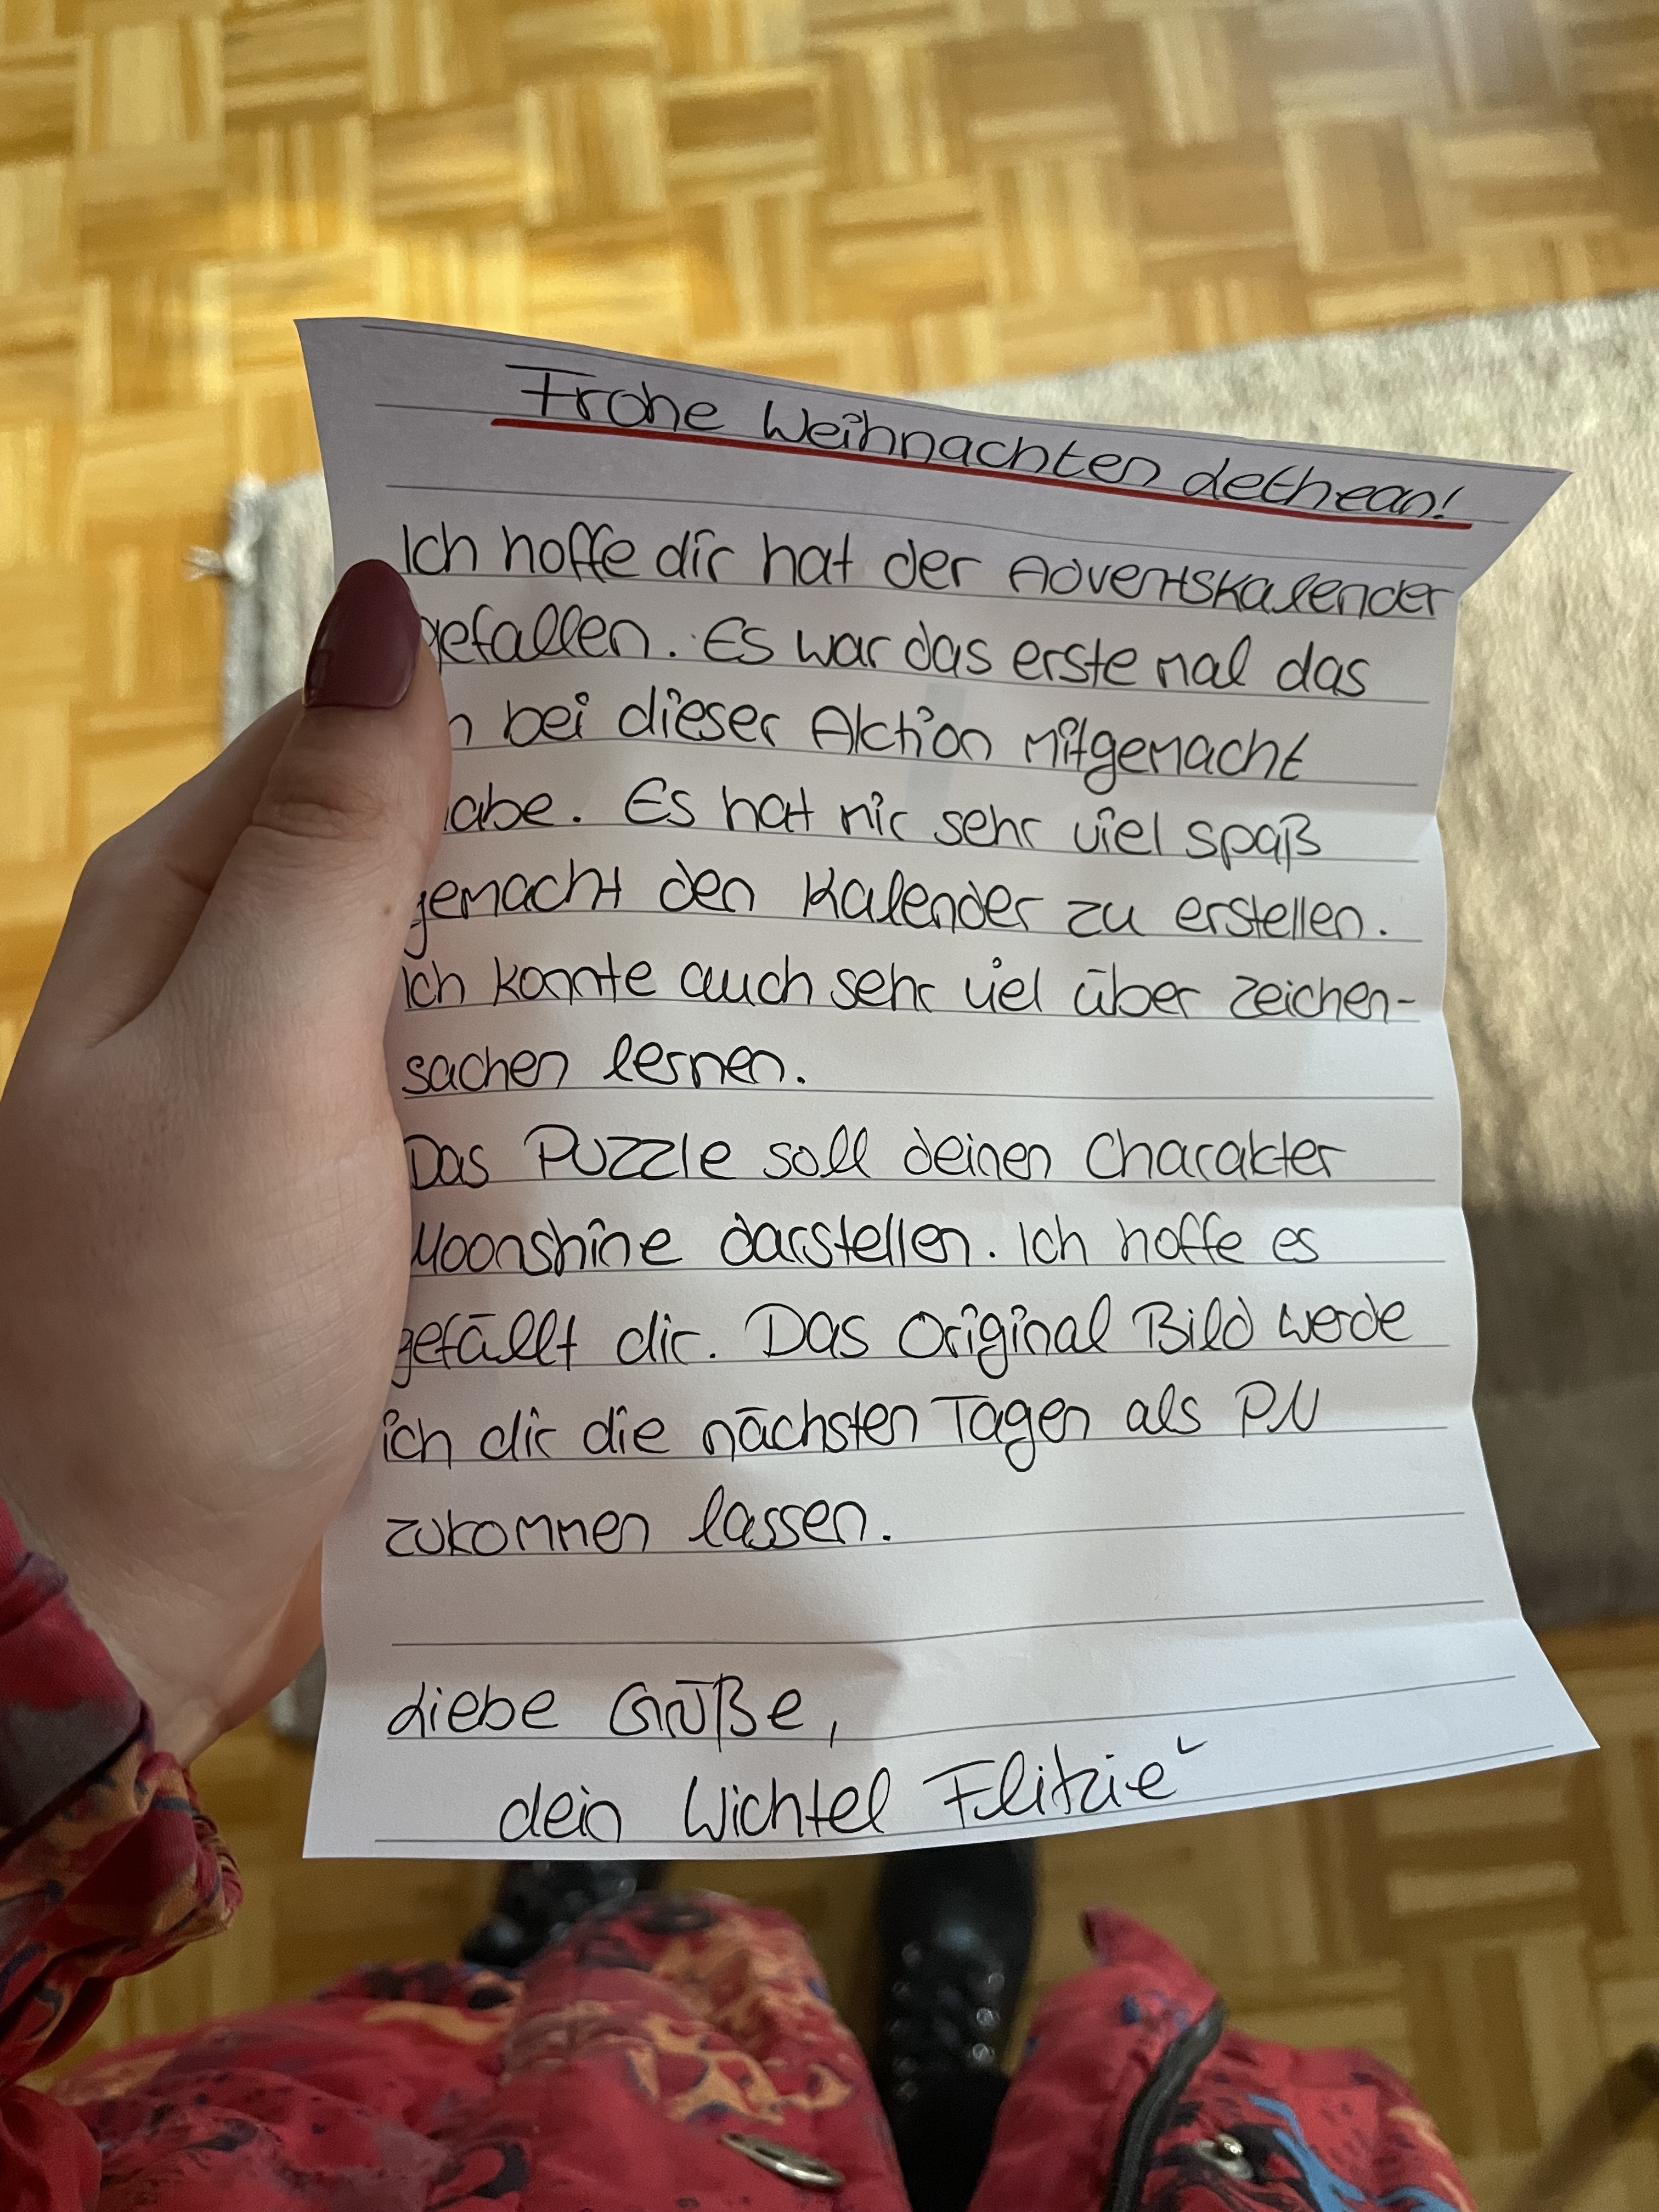 Frohe Weihnachten dethean!
Ich hoffe dir hat der Adventskalender
gefallen. Es war das erste mal das
bei dieser Aktion mitgemacht
habe. Es hat mir sehr viel spaß
gemacht den Kalender zu erstellen.
Ich konnte auch sehr viel über zeichen-
sachen lernen.
Das Puzzle soll deinen Charakter
Moonshine darstellen. Ich hoffe es
gefällt dir. Das Original Bild werde
ich dir die nächsten Tagen als PN
zukommen lassen.
Liebe Grüße,
dein Wichtel Flitzie